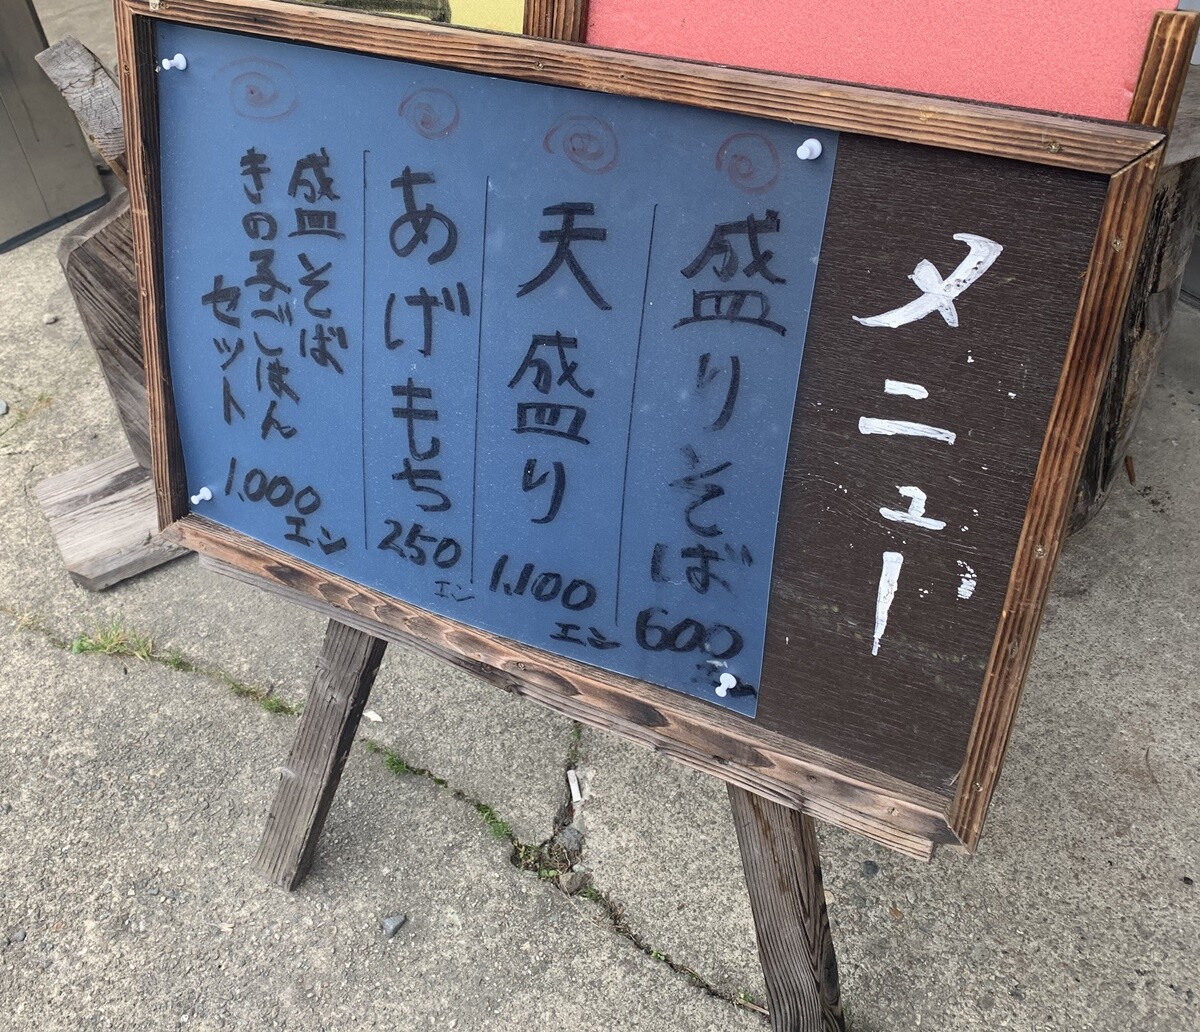 メニュー
盛りそば
600
エン
天盛り
1,100
エン
あげもち
250
エン
盛そば
きの子ごはん
セット
1,000
エン